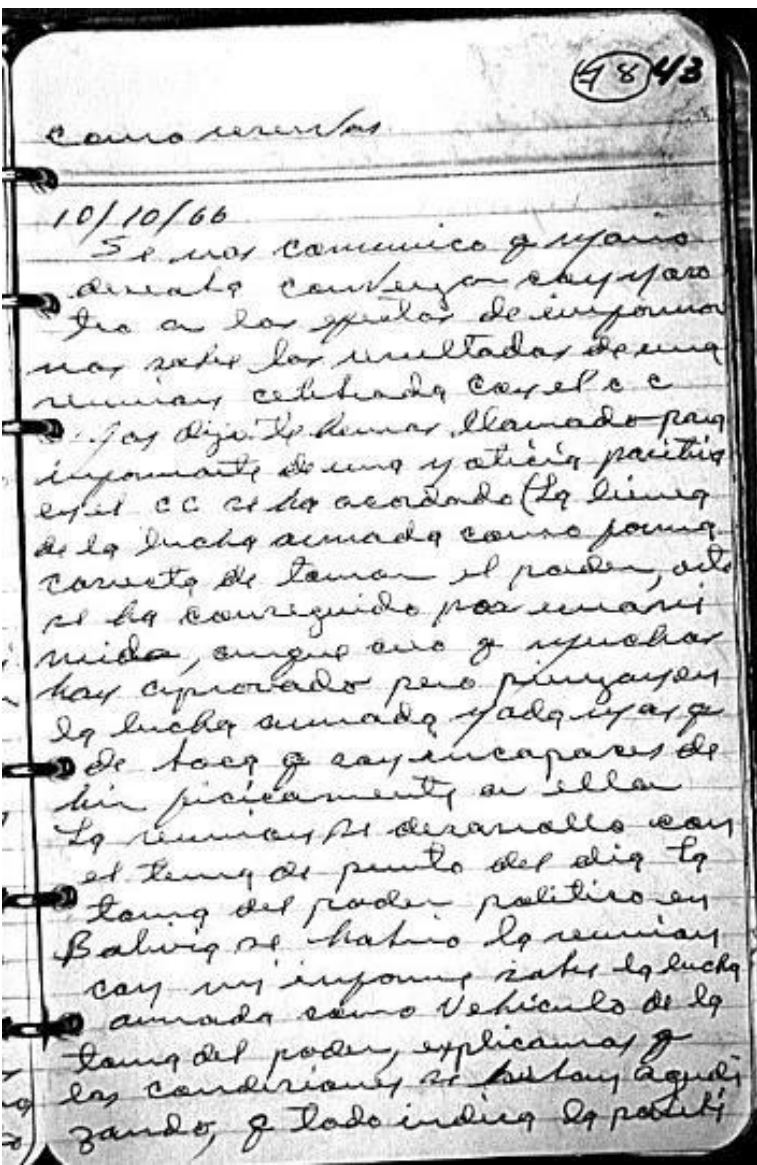 48 43
como reservas
10/10/66
Se nos comunico q Mario
deseaba conversar con noso
tro a los efectos de informar
nos sobre los resultados de una
reunion celebrada con el c c
nos dijo te hemos llamado para
informarte de una noticia positiva
en el CC se ha acordado (La linea
de la lucha armada como forma
correcta de tomar el poder, esto
se ha conseguido por unani
mida, aunque creo q muchos
han aprovado pero piensan en
la lucha armada nada mas q
de boca q son incapases de
hir ficicamente a ella
La reunion se desarrollo con
el tema de punto del dia La
toma del poder politico en
Bolivia se habrio la reunion
con mi informe sobre la lucha
armada como Vehiculo de la
toma del poder, explicamos q
las condisiones se estan agudi
zando, q todo indica la posibi